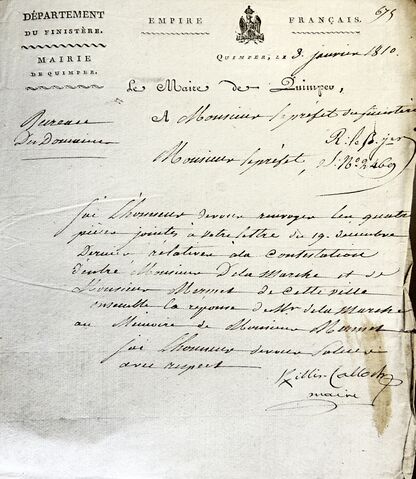 675
DÉPARTEMENT
DU FINISTÈRE.
MAIRIE
DE QUIMPER.
EMPIRE FRANÇAIS.
QUIMPER, LE 3. janvier 1810.
Le Maire de Quimper,
A Monsieur le préfet du finistère
Bureau
Des Domaines
R. le 3. jer
Monsieur le préfet, S. No. 2469
j'ai l'honneur de vous renvoyer les quatre
pièces jointes à votre lettre du 19. décembre
Dernier, relatives à la Contestation
d'entre Monsieur De la Marche et
Monsieur Mermet de cette ville
ensemble la réponse de Mr. de la Marche
au Mémoire de Monsieur Mermet
j'ai l'honneur de vous saluer
avec respect
maire